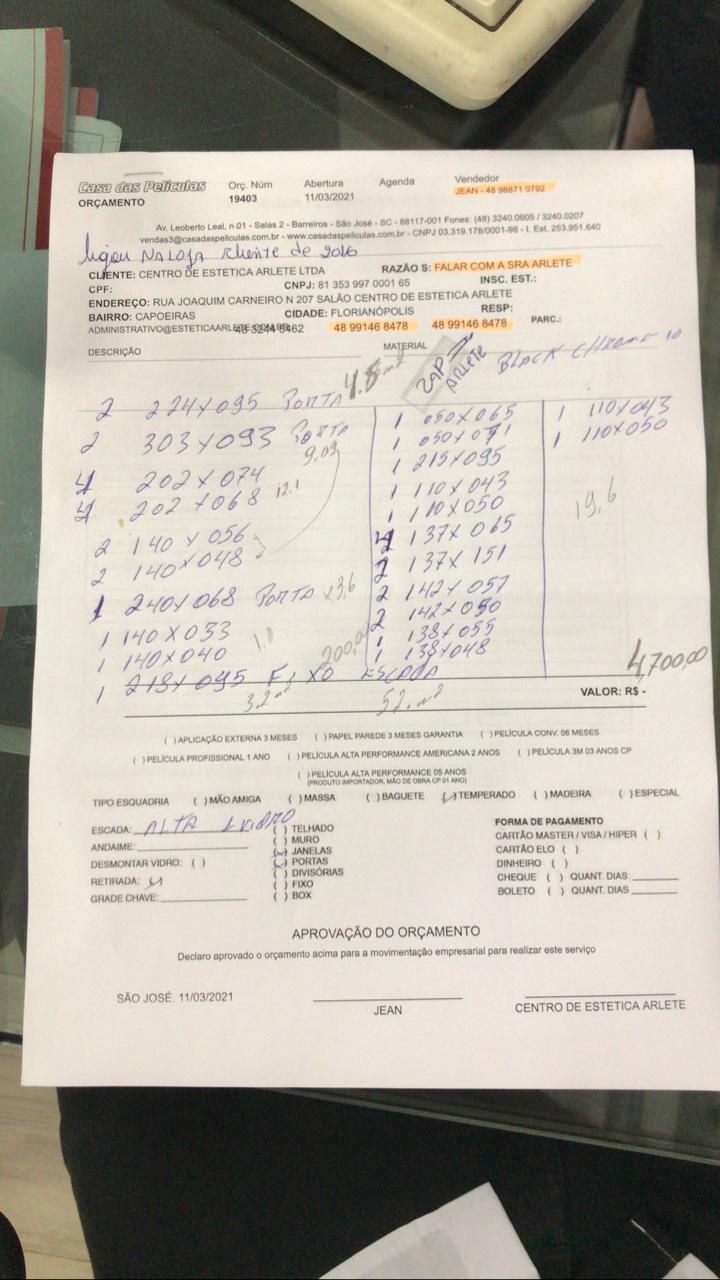 Casa das Películas
ORÇAMENTO
Orç. Núm Abertura Agenda Vendedor
19403 11/03/2021 JEAN - 48 98871 0792
Av. Leoberto Leal, n 01 - Salas 2 - Barreiros - São José - SC - 88117-001 Fones: (48) 3240.0605 / 3240.0207
vendas3@casadaspeliculas.com.br - www.casadaspeliculas.com.br - CNPJ 03.319.178/0001-98 - I. Est. 253.951.640
ligou NA LOJA cliente de 2016
CLIENTE: CENTRO DE ESTETICA ARLETE LTDA RAZÃO S: FALAR COM A SRA ARLETE
CPF: CNPJ: 81 353 997 0001 65 INSC. EST.:
ENDEREÇO: RUA JOAQUIM CARNEIRO N 207 SALÃO CENTRO DE ESTETICA ARLETE
BAIRRO: CAPOEIRAS CIDADE: FLORIANÓPOLIS RESP:
48 99146 8478 48 99146 8478 PARC.:
DESCRIÇÃO MATERIAL
ZAP ARLETE BLACK
4.8 m2
2 224X095 PORTA
2 303X093 PORTA
9,09
4 202X074
4 202X068 12.1
2 140X056
2 140X048
1 240X068 PORTA X3,6
1 140X033
1 140X040 1,0
1 218X095 FIXO ESCADA
200,00
3,2 m2 52. m2
1 050X065
1 050X071
1 215X095
1 110X043
1 110X050
4 137X065
2 137X151
2 142X057
2 142X050
1 138X055
1 138X048
1 110X043
1 110X050
19,6
4,700,00
VALOR: R$ -
( ) APLICAÇÃO EXTERNA 3 MESES ( ) PAPEL PAREDE 3 MESES GARANTIA ( ) PELÍCULA CONV. 06 MESES
( ) PELÍCULA PROFISSIONAL 1 ANO ( ) PELÍCULA ALTA PERFORMANCE AMERICANA 2 ANOS ( ) PELÍCULA 3M 03 ANOS CP
( ) PELÍCULA ALTA PERFORMANCE 05 ANOS
(PRODUTO IMPORTADOR, MÃO DE OBRA CP 01 ANO)
TIPO ESQUADRIA ( ) MÃO AMIGA ( ) MASSA ( ) BAGUETE (✓) TEMPERADO ( ) MADEIRA ( ) ESPECIAL
ESCADA: ALTA 1 VIDRO
ANDAIME:
DESMONTAR VIDRO: ( )
RETIRADA: ✓
GRADE CHAVE:
( ) TELHADO
( ) MURO
(✓) JANELAS
(✓) PORTAS
( ) DIVISÓRIAS
( ) FIXO
( ) BOX
FORMA DE PAGAMENTO
CARTÃO MASTER / VISA / HIPER ( )
CARTÃO ELO ( )
DINHEIRO ( )
CHEQUE ( ) QUANT. DIAS:
BOLETO ( ) QUANT. DIAS
APROVAÇÃO DO ORÇAMENTO
Declaro aprovado o orçamento acima para a movimentação empresarial para realizar este serviço
SÃO JOSÉ. 11/03/2021
JEAN
CENTRO DE ESTETICA ARLETE